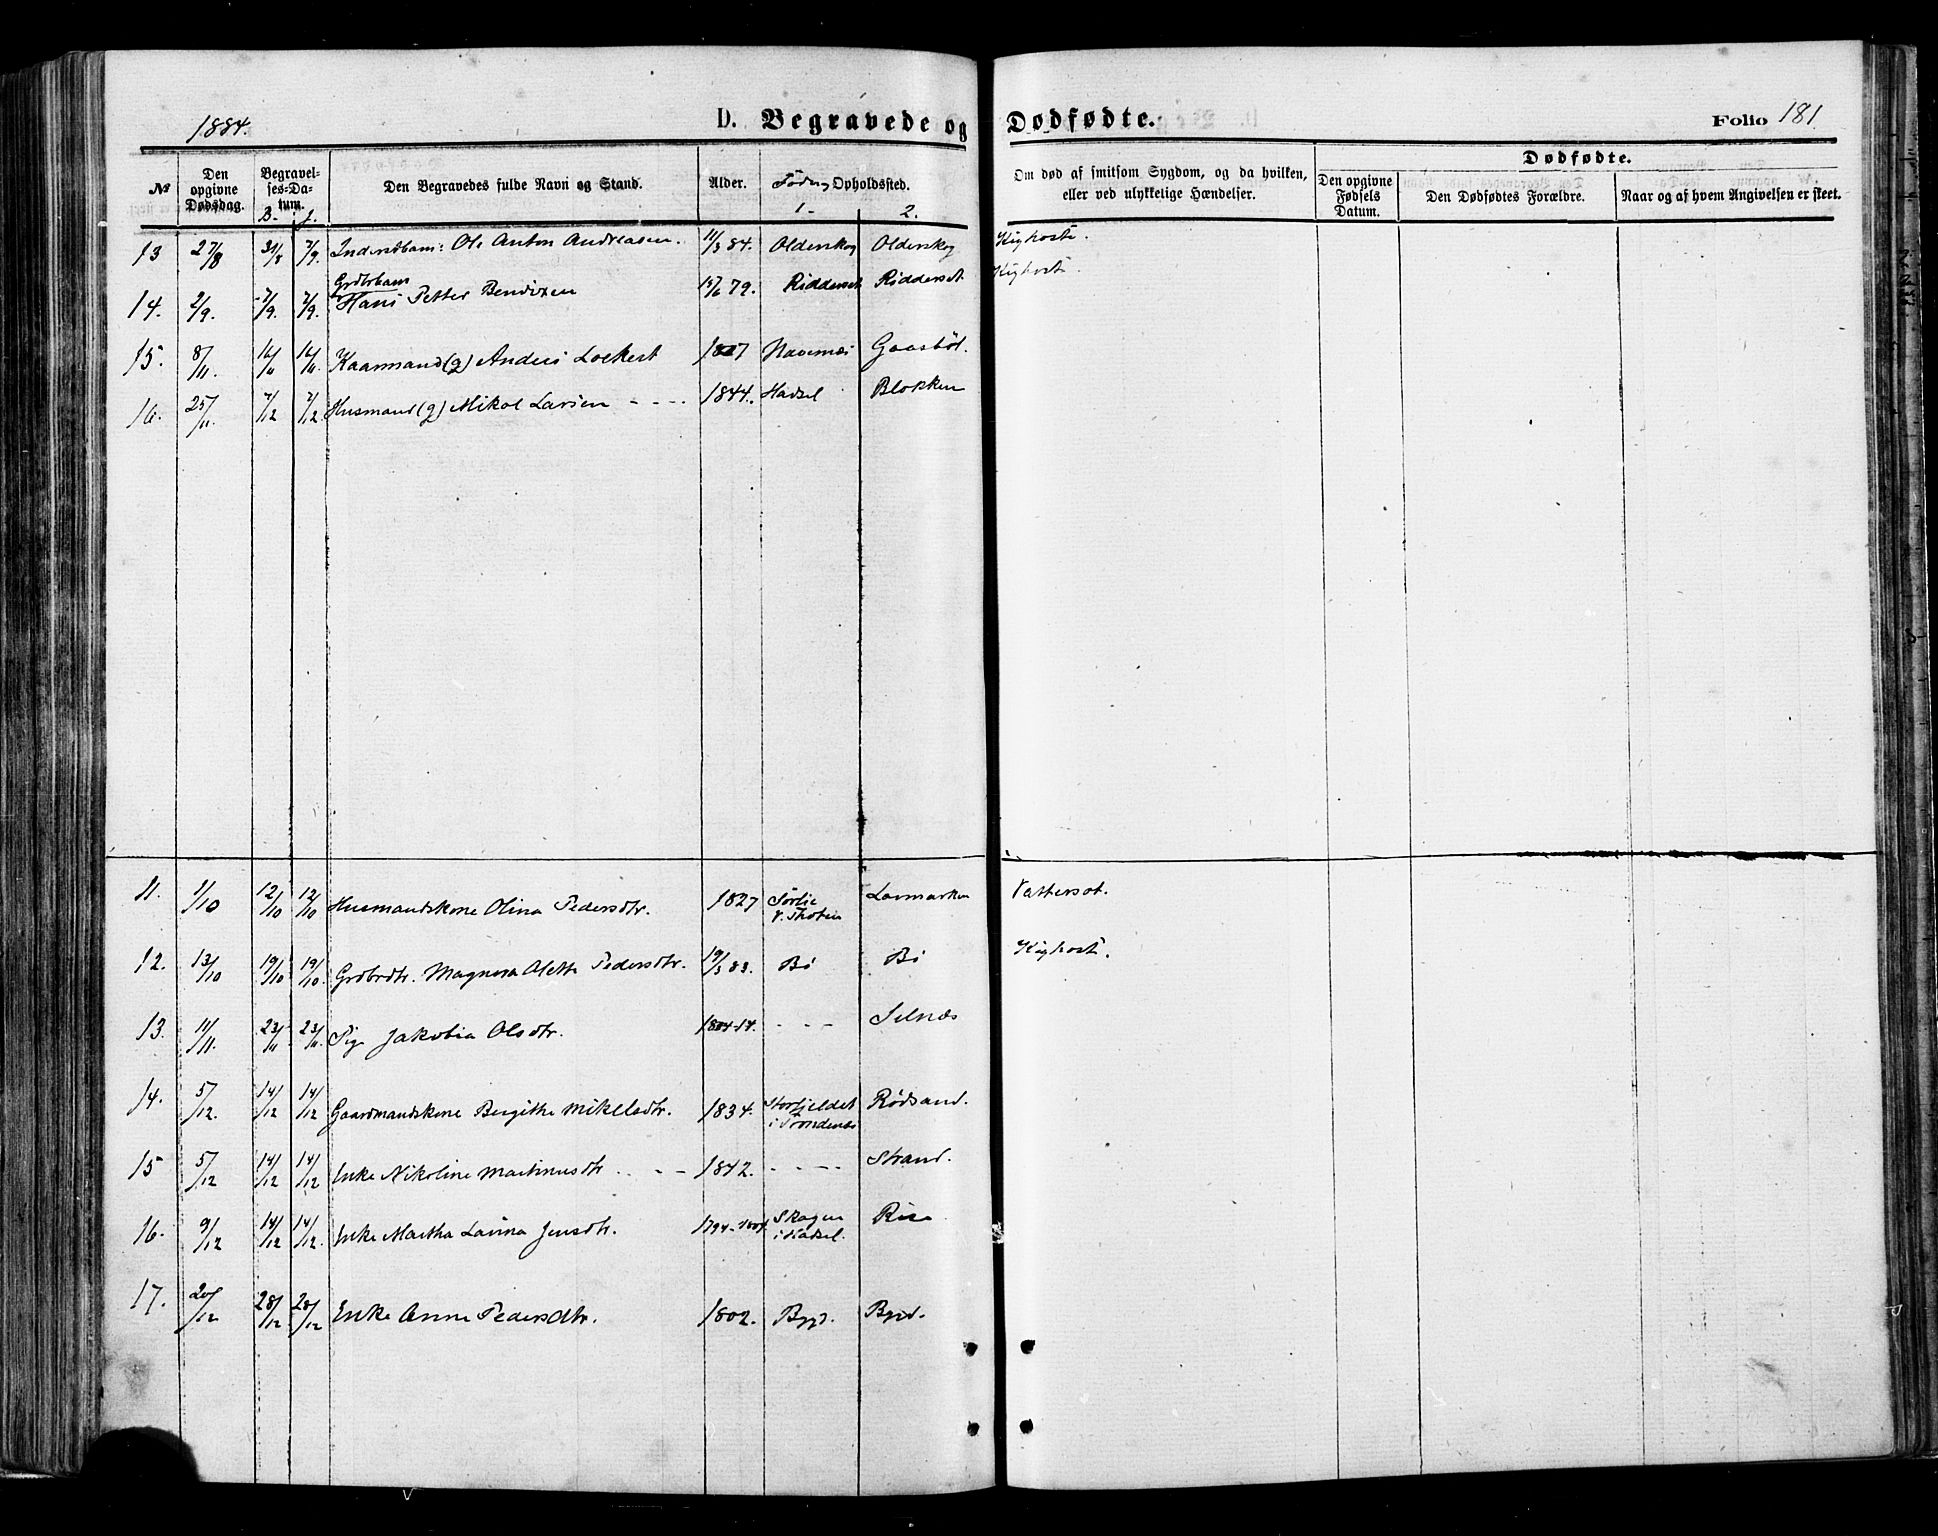 1884.
D. Begravede og Dødfødte.
Folio 181
№ Den opgivne Dødsdag. Begravelses-Datum. B. J. Den Begravedes fulde Navn og Stand. Alder. Føde og Opholdssted. 1- 2. Om død af smitsom Sygdom, og da hvilken, eller ved ulykkelige Hændelser. Dødfødte. Den opgivne Fødsels Datum. Den Dødfødtes Forældre. Naar og af hvem Angivelsen er skeet.
13 27/8 31/8 7/9. Inderstbarn: Ole Anton Andreasen. 11/3 84. Olderskog Olderskog Kighoste.
14. 2/9. 7/9. 7/9. Grdbrbarn Hans Petter Bendixen 15/6 79. Ridderset Ridderset Kighoste
15. 8/11. 16/11 16/11. Kaarmand (g) Anders Lockert 1807 Gaasbøl.
16. 25/11. 7/12 7/12. Husmand (g) Mikal Larsen - - - - 1844. Hadsel Blokken
11. 1/10 12/10 12/10 Husmandskone Olina Pedersdtr. 1827 Sørlie Lovmarken Vattersot.
12. 13/10 19/10 19/10 Grdbrdtr. Magnora Alette Pedersdtr. 19/3 83. Bø Bø Kighoste.
13. 11/11. 23/11 23/11. Pige Jakobia Olsdtr. - - - Selnæs
14. 5/12. 14/12 14/12 Gaardmandskone Bergithe Mikelsdtr. 1834. Storfjeldet i Trondenæs Rødsand.
15 5/12 14/12 14/12 Enke Nikoline Martinusdtr. - - 1842. - - - - Strand.
16. 9/12 14/12 14/12. Enke Martha Lavina Jensdtr. 1794- Skagen i Hadsel. Rise
17. 20/12 28/12 28/12 Enke Anne Pedersdtr. 1802. Bygd. Bygd.